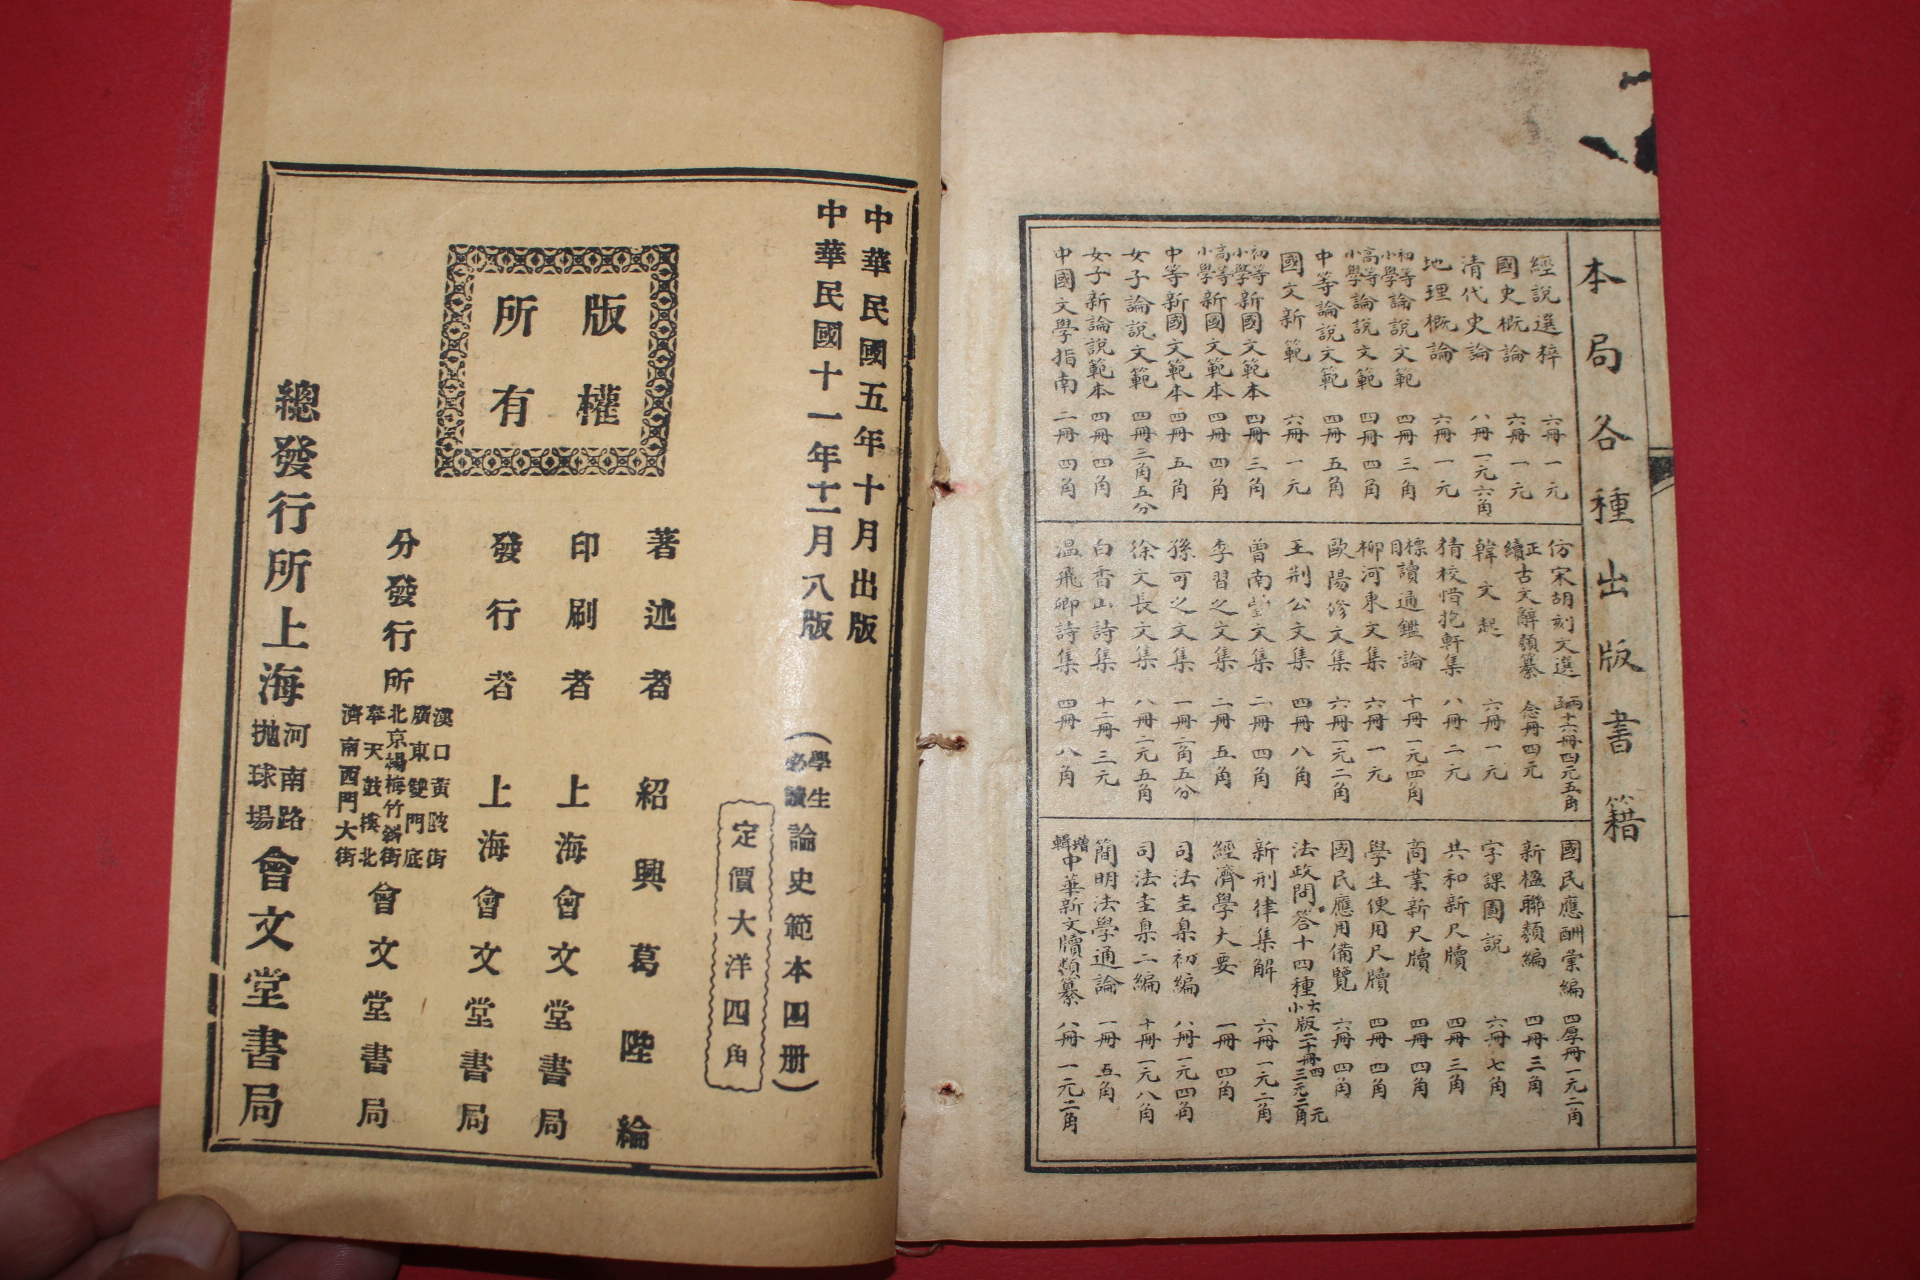 本局各種出版書籍
經說選粹 六冊 一元
國史概論 六冊 一元
清代史論 八冊 一元六角
地理概論 六冊 一元
初等小學論說文範 四冊 三角
高等小學論說文範 四冊 四角
中等論說文範 四冊 五角
國文新範 六冊 一元
初等小學新國文範本 四冊 三角
高等小學新國文範本 四冊 四角
中等新國文範本 四冊 五角
女子論說文範 四冊 三角五分
女子新論說範本 四冊 四角
中國文學指南 二冊 四角
仿宋胡刻文選 十六冊 四元五角
正續古文辭類纂 念冊 四元
韓文起 六冊 一元
精校惜抱軒集 八冊 二元
標目讀通鑑論 十冊 一元四角
柳河東文集 六冊 一元
歐陽修文集 六冊 一元二角
王荊公文集 四冊 八角
曾南豐文集 二冊 四角
李習之文集 二冊 五角
孫可之文集 一冊 二角五分
徐文長文集 八冊 二元五角
白香山詩集 十二冊 三元
温飛卿詩集 四冊 八角
國民應酬彙編 四厚冊 一元二角
新楹聯類編 四冊 三角
字課圖說 六冊 七角
共和新尺牘 四冊 三角
商業新尺牘 四冊 四角
學生便用尺牘 四冊 四角
國民應用備覽 六冊 四角
法政問答十四種 大小版二十冊 四元 三元二角
新刑律集解 六冊 一元二角
經濟學大要 一冊 四角
司法圭臬初編 八冊 一元四角
司法圭臬二編 十冊 一元八角
簡明法學通論 一冊 五角
增輯中華新文牘類纂 八冊 一元二角
中華民國五年十月出版
中華民國十一年十二月八版
(學生必讀論史範本四册)
定價大洋四角
著述者 紹興葛陛綸
印刷者 上海會文堂書局
發行者 上海會文堂書局
版權所有
分發行所 漢口黃陂街 廣東雙門底 北京楊梅竹斜街 奉天鼓樓北 濟南西門大街 會文堂書局
總發行所上海河南路拋球場會文堂書局